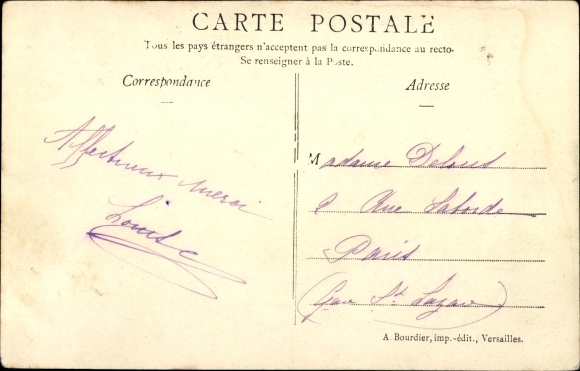 CARTE POSTALE
Tous les pays étrangers n'acceptent pas la correspondance au recto.
Se renseigner à la Poste.
Correspondance
Adresse
Affectueux merci
Louise
Madame
Rue Laborde
Paris
(Gare St Lazare)
A. Bourdier, imp.-édit., Versailles.